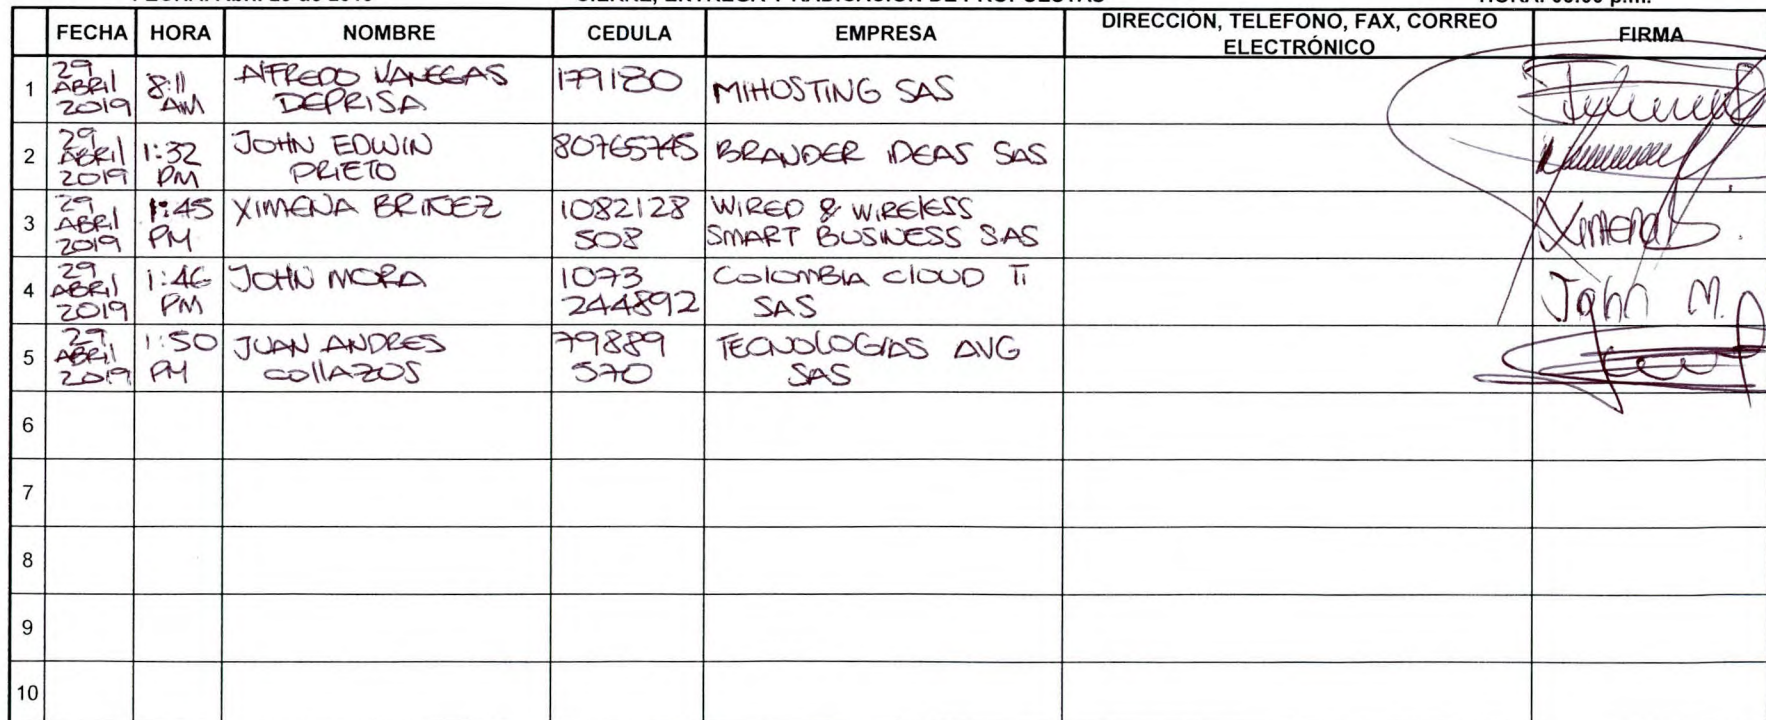 CIERRE, ENTREGA Y RADICACIÓN DE PROPUESTAS
FECHA HORA NOMBRE CEDULA EMPRESA DIRECCIÓN, TELEFONO, FAX, CORREO ELECTRÓNICO FIRMA
1 29 ABRIL 2019 8:11 AM ALFREDO VANEGAS DEPRISA 179180 MIHOSTING SAS
2 29 ABRIL 2019 1:32 PM JOHN EDWIN PRIETO 80765745 BRANDER IDEAS SAS
3 29 ABRIL 2019 1:45 PM XIMENA BRIÑEZ 1082128 508 WIRED & WIRELESS SMART BUSINESS SAS Ximena B.
4 29 ABRIL 2019 1:46 PM JOHN MORA 1073 244892 COLOMBIA CLOUD TI SAS John M.
5 29 ABRIL 2019 1:50 PM JUAN ANDRES COLLAZOS 79889 570 TECNOLOGIAS AVG SAS
6
7
8
9
10